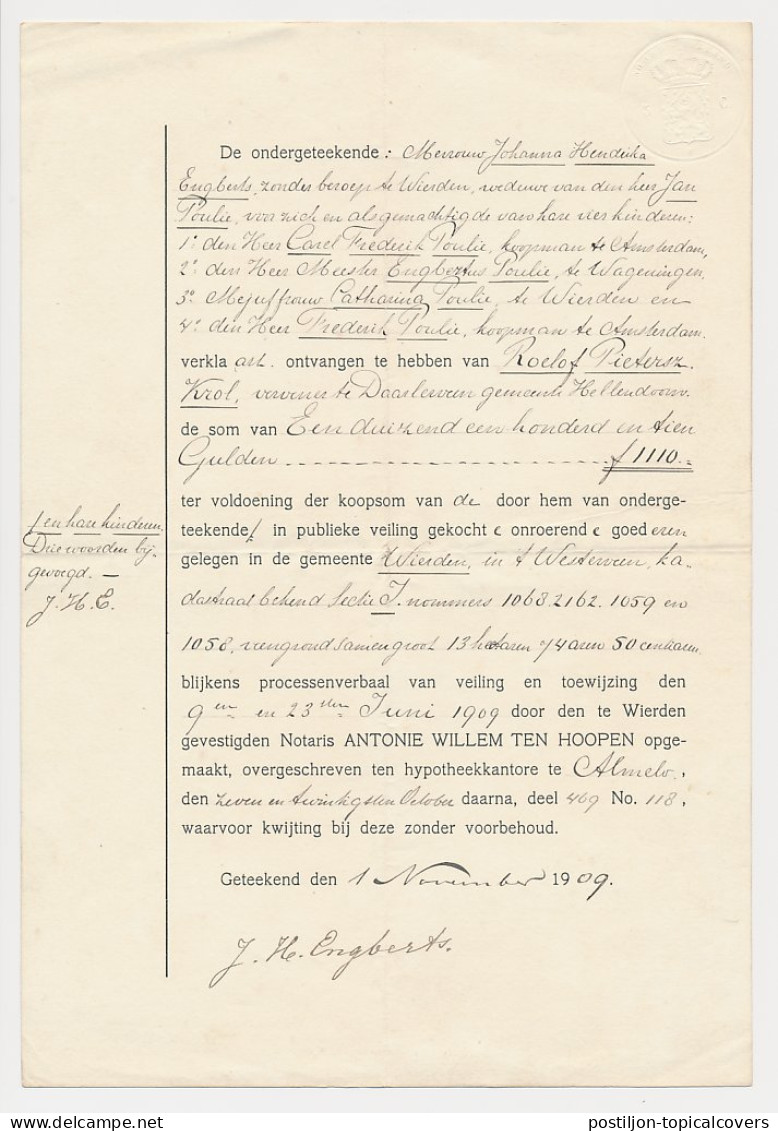 De ondergeteekende : Mevrouw Johanna Hendrika
Engberts, zonder beroep te Wierden, weduwe van den heer Jan
Poulie, voor zich en als gemachtigde van hare vier kinderen:
1o den Heer Carel Frederik Poulie, koopman te Amsterdam,
2o den Heer Meester Engbertus Poulie, te Wageningen,
3o Mejuffrouw Catharina Poulie, te Wierden en
4o den Heer Frederik Poulie, koopman te Amsterdam.
verkla art. ontvangen te hebben van Roelof Pietersz.
Krol, vervener te Daarleveen gemeente Hellendoorn.
de som van Een duizend een honderd en tien
Gulden - - - - - - - - - - - - - - - - f 1110.-
ter voldoening der koopsom van de door hem van onderge-
teekende / in publieke veiling gekocht e onroerend e goed eren
/ en hare kinderen.
Drie woorden bij-
gevoegd. —
J. H. E.
gelegen in de gemeente Wierden, in 't Westerveen, ka-
dastraal bekend Sectie I. nommers 1063. 2162. 1059 en
1058, veengrond samen groot 13 hectaren 74 aren 50 centiaren
blijkens processenverbaal van veiling en toewijzing den
9en en 23sten Juni 1909 door den te Wierden
gevestigden Notaris ANTONIE WILLEM TEN HOOPEN opge-
maakt, overgeschreven ten hypotheekkantore te Almelo.,
den zeven en twintigsten October daarna, deel 469 No. 118,
waarvoor kwijting bij deze zonder voorbehoud.
Geteekend den 1 November 1909.
J. H. Engberts.
postiljon-topicalcovers